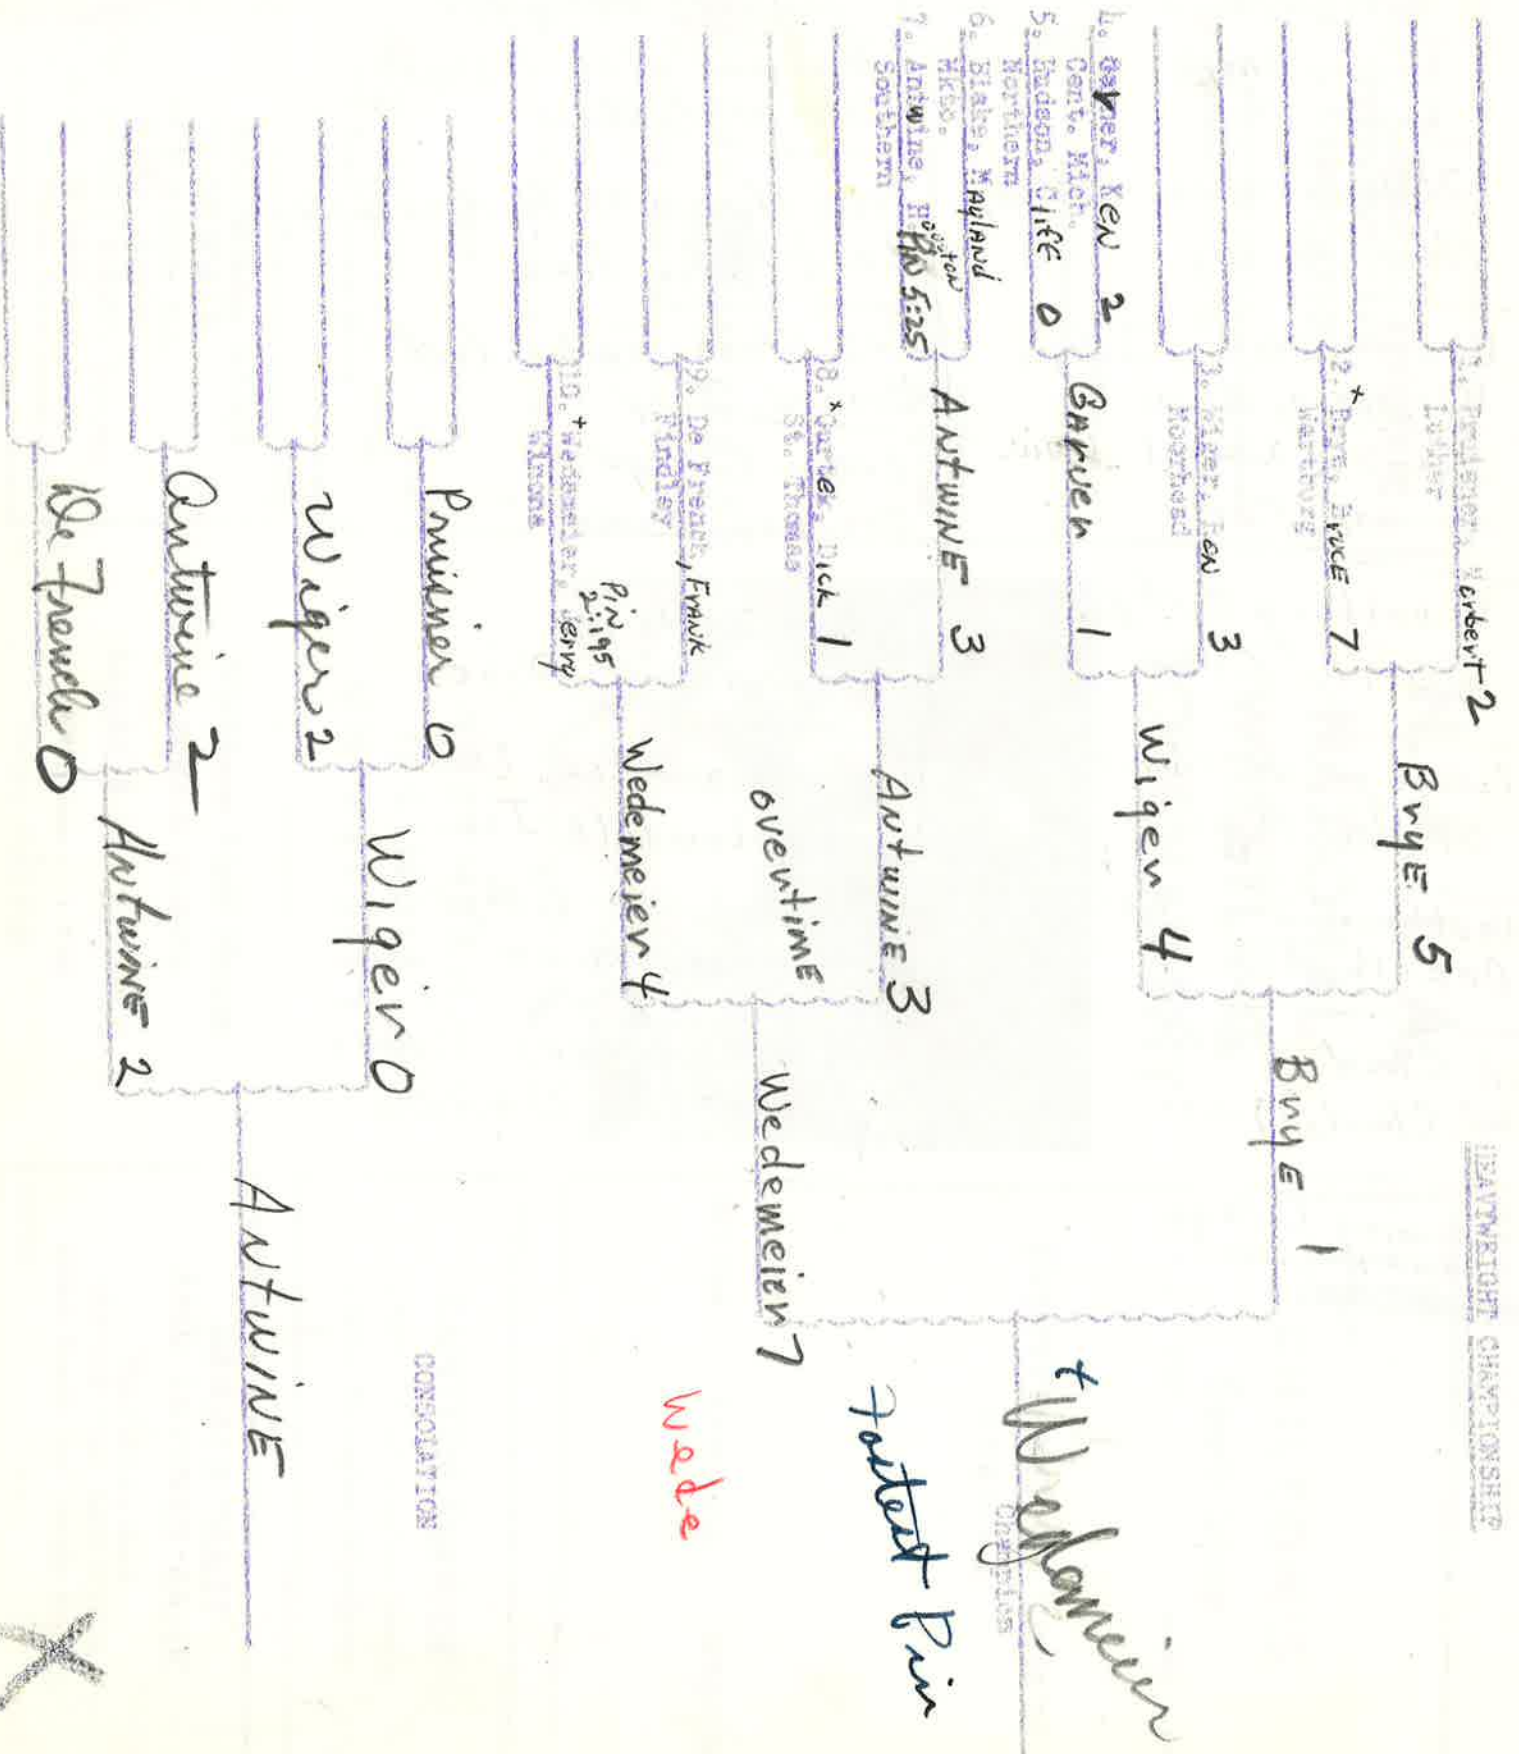 HEAVYWEIGHT CHAMPIONSHIP
1. Prusner, Norbert 2
Luther
2. * Brye, Bruce 7
Wartburg
3. Wiger, Ron 3
Moorhead
4. Garner, Ken 2
Cent. Mich.
5. Hudson, Cliff 0
Northern
6. Blake, Mayland
Mkto.
7. Antwine, Houston PIN 5:25
Southern
8. * Dick 1
St. Thomas
9. De French, FRANK
Findley
10. + Wedemeier, Jerry
Winona
PIN
2:195
GArner 1
ANtwINE 3
BryE 5
Wiger 4
ANtwINE 3
overtimE
Wedemeier 4
BryE 1
Wedemeier 7
+ Wedemeier
Champion
Fastest Pin
Wede
CONSOLATION
Prusner 0
Wiger 2
Antwine 2
De French 0
Wiger 0
ANtwINE 2
ANtwINE
X